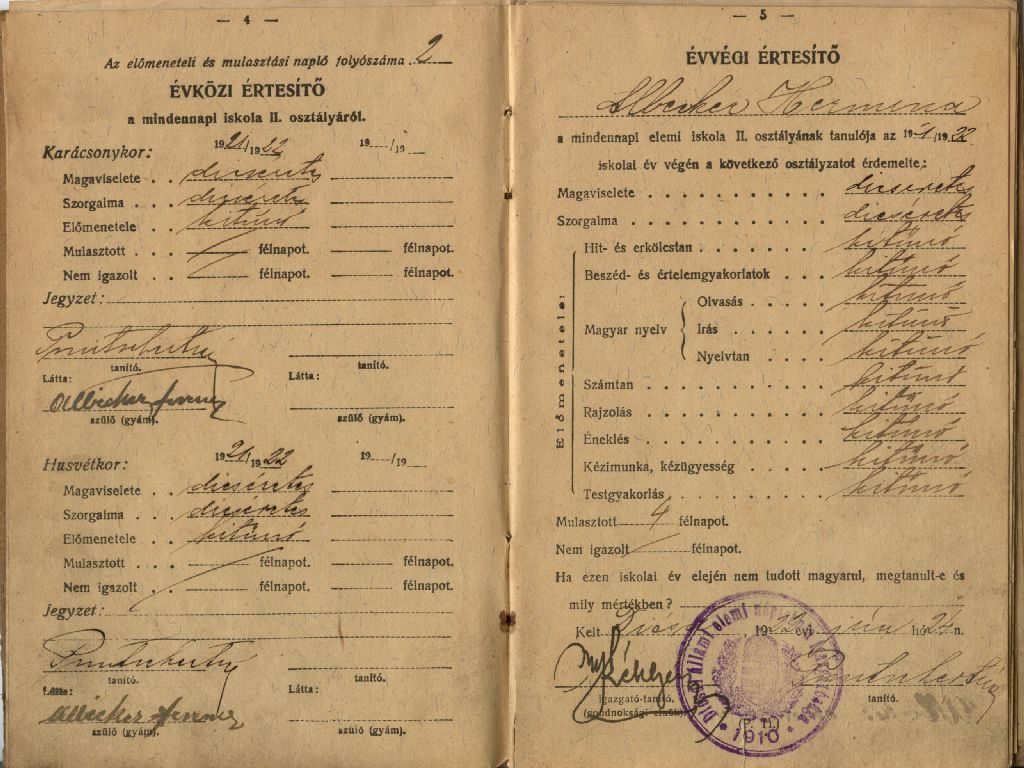 — 4 —
Az előmeneteli és mulasztási napló folyószáma 2
ÉVKÖZI ÉRTESÍTŐ
a mindennapi iskola II. osztályáról.
Karácsonykor: 1921/1922 19 /19
Magaviselete . . dicséretes
Szorgalma . . . dicséretes
Előmenetele . . kitünő
Mulasztott . . . félnapot. félnapot.
Nem igazolt . . félnapot. félnapot.
Jegyzet:
tanító. tanító.
Látta: Látta:
Albecker Ferenc
szülő (gyám). szülő (gyám).
Husvétkor: 1921/1922 19 /19
Magaviselete . . dicséretes
Szorgalma . . . dicséretes
Előmenetele . . kitünő
Mulasztott . . . félnapot. félnapot.
Nem igazolt . . félnapot. félnapot.
Jegyzet:
tanító. tanító.
Látta: Látta:
Albecker Ferenc
szülő (gyám). szülő (gyám).
— 5 —
ÉVVÉGI ÉRTESÍTŐ
Albecker Hermina
a mindennapi elemi iskola II. osztályának tanulója az 1921/1922
iskolai év végén a következő osztályzatot érdemelte:
Magaviselete . . . . . . . . dicséretes
Szorgalma . . . . . . . . dicséretes
Előmenetele:
Hit- és erkölcstan . . . . . . . kitünő
Beszéd- és értelemgyakorlatok . . . kitünő
Magyar nyelv
Olvasás . . . . kitünő
Irás . . . . . . kitünő
Nyelvtan . . . . kitünő
Számtan . . . . . . . . . kitünő
Rajzolás . . . . . . . . . kitünő
Éneklés . . . . . . . . . kitünő
Kézimunka, kézügyesség . . . . kitünő
Testgyakorlás . . . . . . . kitünő
Mulasztott 4 félnapot.
Nem igazolt félnapot.
Ha ezen iskolai év elején nem tudott magyarul, megtanult-e és
mily mértékben?
Kelt 1922 évi jún hó 24 n.
igazgató-tanító. tanító.
(gondnoksági elnök)
(P. H.)
állami elemi
1910